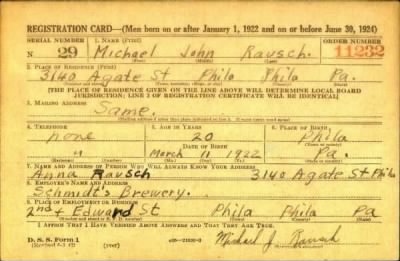 REGISTRATION CARD—(Men born on or after January 1, 1922 and on or before June 30, 1924)
SERIAL NUMBER 1. NAME (Print) ORDER NUMBER
N 29 Michael John Rausch. 11232
(First) (Middle) (Last)
2. PLACE OF RESIDENCE (Print)
3140 Agate St Phila Phila Pa.
[THE PLACE OF RESIDENCE GIVEN ON THE LINE ABOVE WILL DETERMINE LOCAL BOARD
JURISDICTION; LINE 2 OF REGISTRATION CERTIFICATE WILL BE IDENTICAL]
3. MAILING ADDRESS
Same
4. TELEPHONE 5. AGE IN YEARS 6. PLACE OF BIRTH
none 20 Phila
" March 11 1922 Pa.
7. NAME AND ADDRESS OF PERSON WHO WILL ALWAYS KNOW YOUR ADDRESS
Anna Rausch 3140 Agate St Phila
8. EMPLOYER'S NAME AND ADDRESS
Schmidt's Brewery.
9. PLACE OF EMPLOYMENT OR BUSINESS
2nd + Edward St Phila Phila Pa
I AFFIRM THAT I HAVE VERIFIED ABOVE ANSWERS AND THAT THEY ARE TRUE.
D. S. S. Form 1 (over) Michael J. Rausch